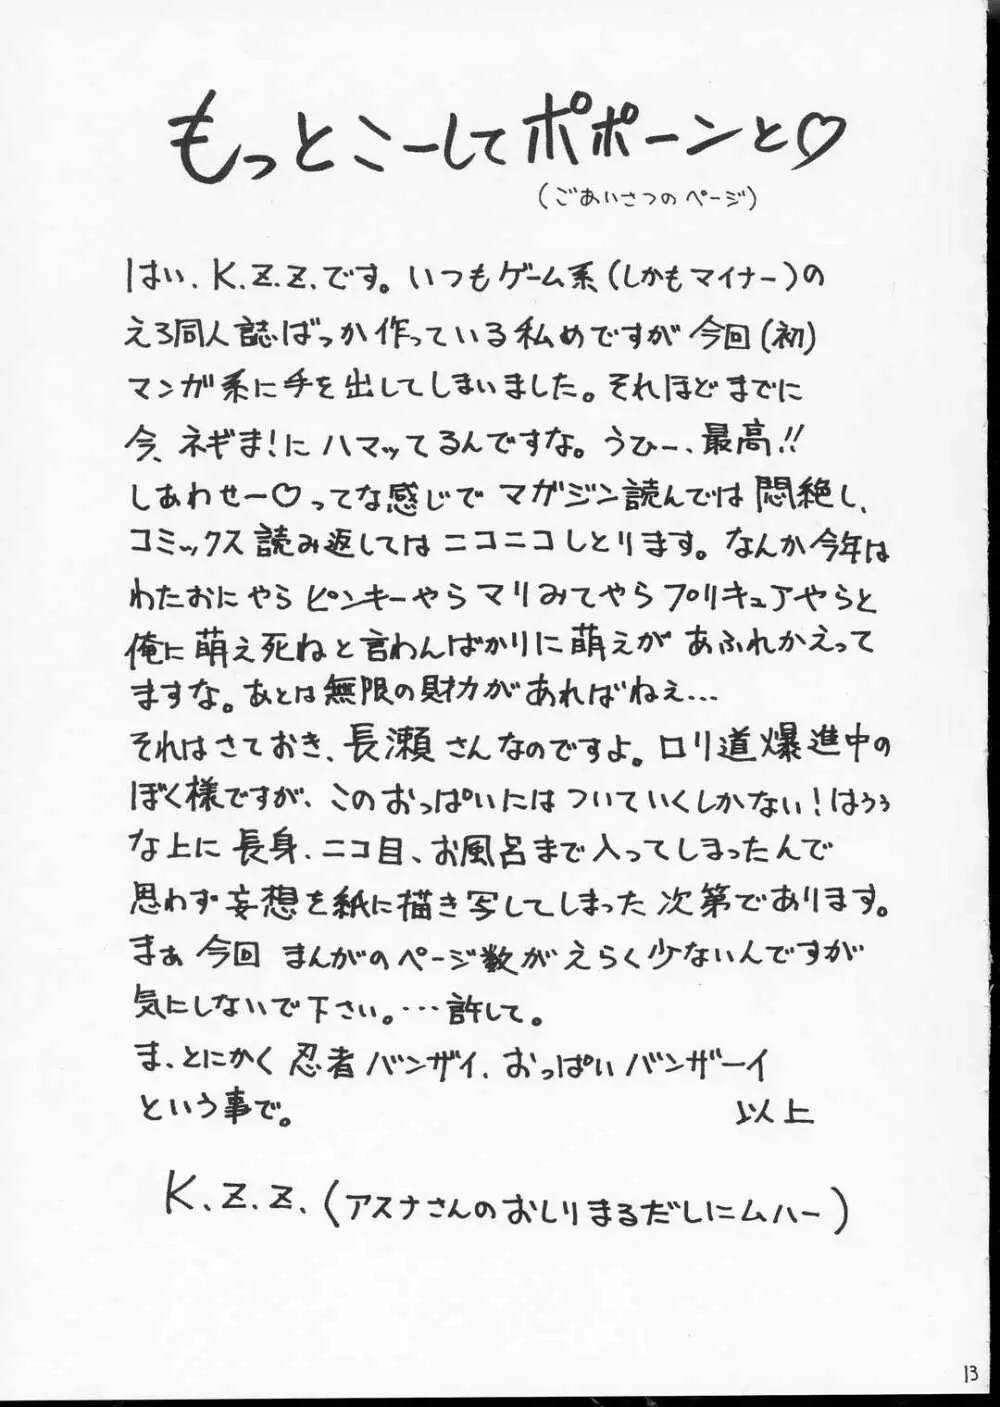 もっとこーしてポポーンと♡
(ごあいさつのページ)
はい、K.Z.Z.です。いつもゲーム系(しかもマイナー)の
えろ同人誌ばっか作っている私めですが今回(初)
マンガ系に手を出してしまいました。それほどまでに
今、ネギま!にハマッてるんですな。うひー、最高!!
しあわせー♡ってな感じでマガジン読んでは悶絶し、
コミックス読み返してはニコニコしとります。なんか今年は
わたおにやらピンキーやらマリみてやらプリキュアやらと
俺に萌え死ねと言わんばかりに萌えがあふれかえって
ますな。あとは無限の財力があればねぇ…
それはさておき、長瀬さんなのですよ。ロリ道爆進中の
ぼく様ですが、このおっぱいにはついていくしかない!はぅぅ
な上に長身、ニコ目、お風呂まで入ってしまったんで
思わず妄想を紙に描き写してしまった次第であります。
まぁ今回まんがのページ数がえらく少ないんですが
気にしないで下さい。…許して。
ま、とにかく忍者バンザイ、おっぱいバンザーイ
という事で。 以上
K.Z.Z.(アスナさんのおしりまるだしにムハー)
13